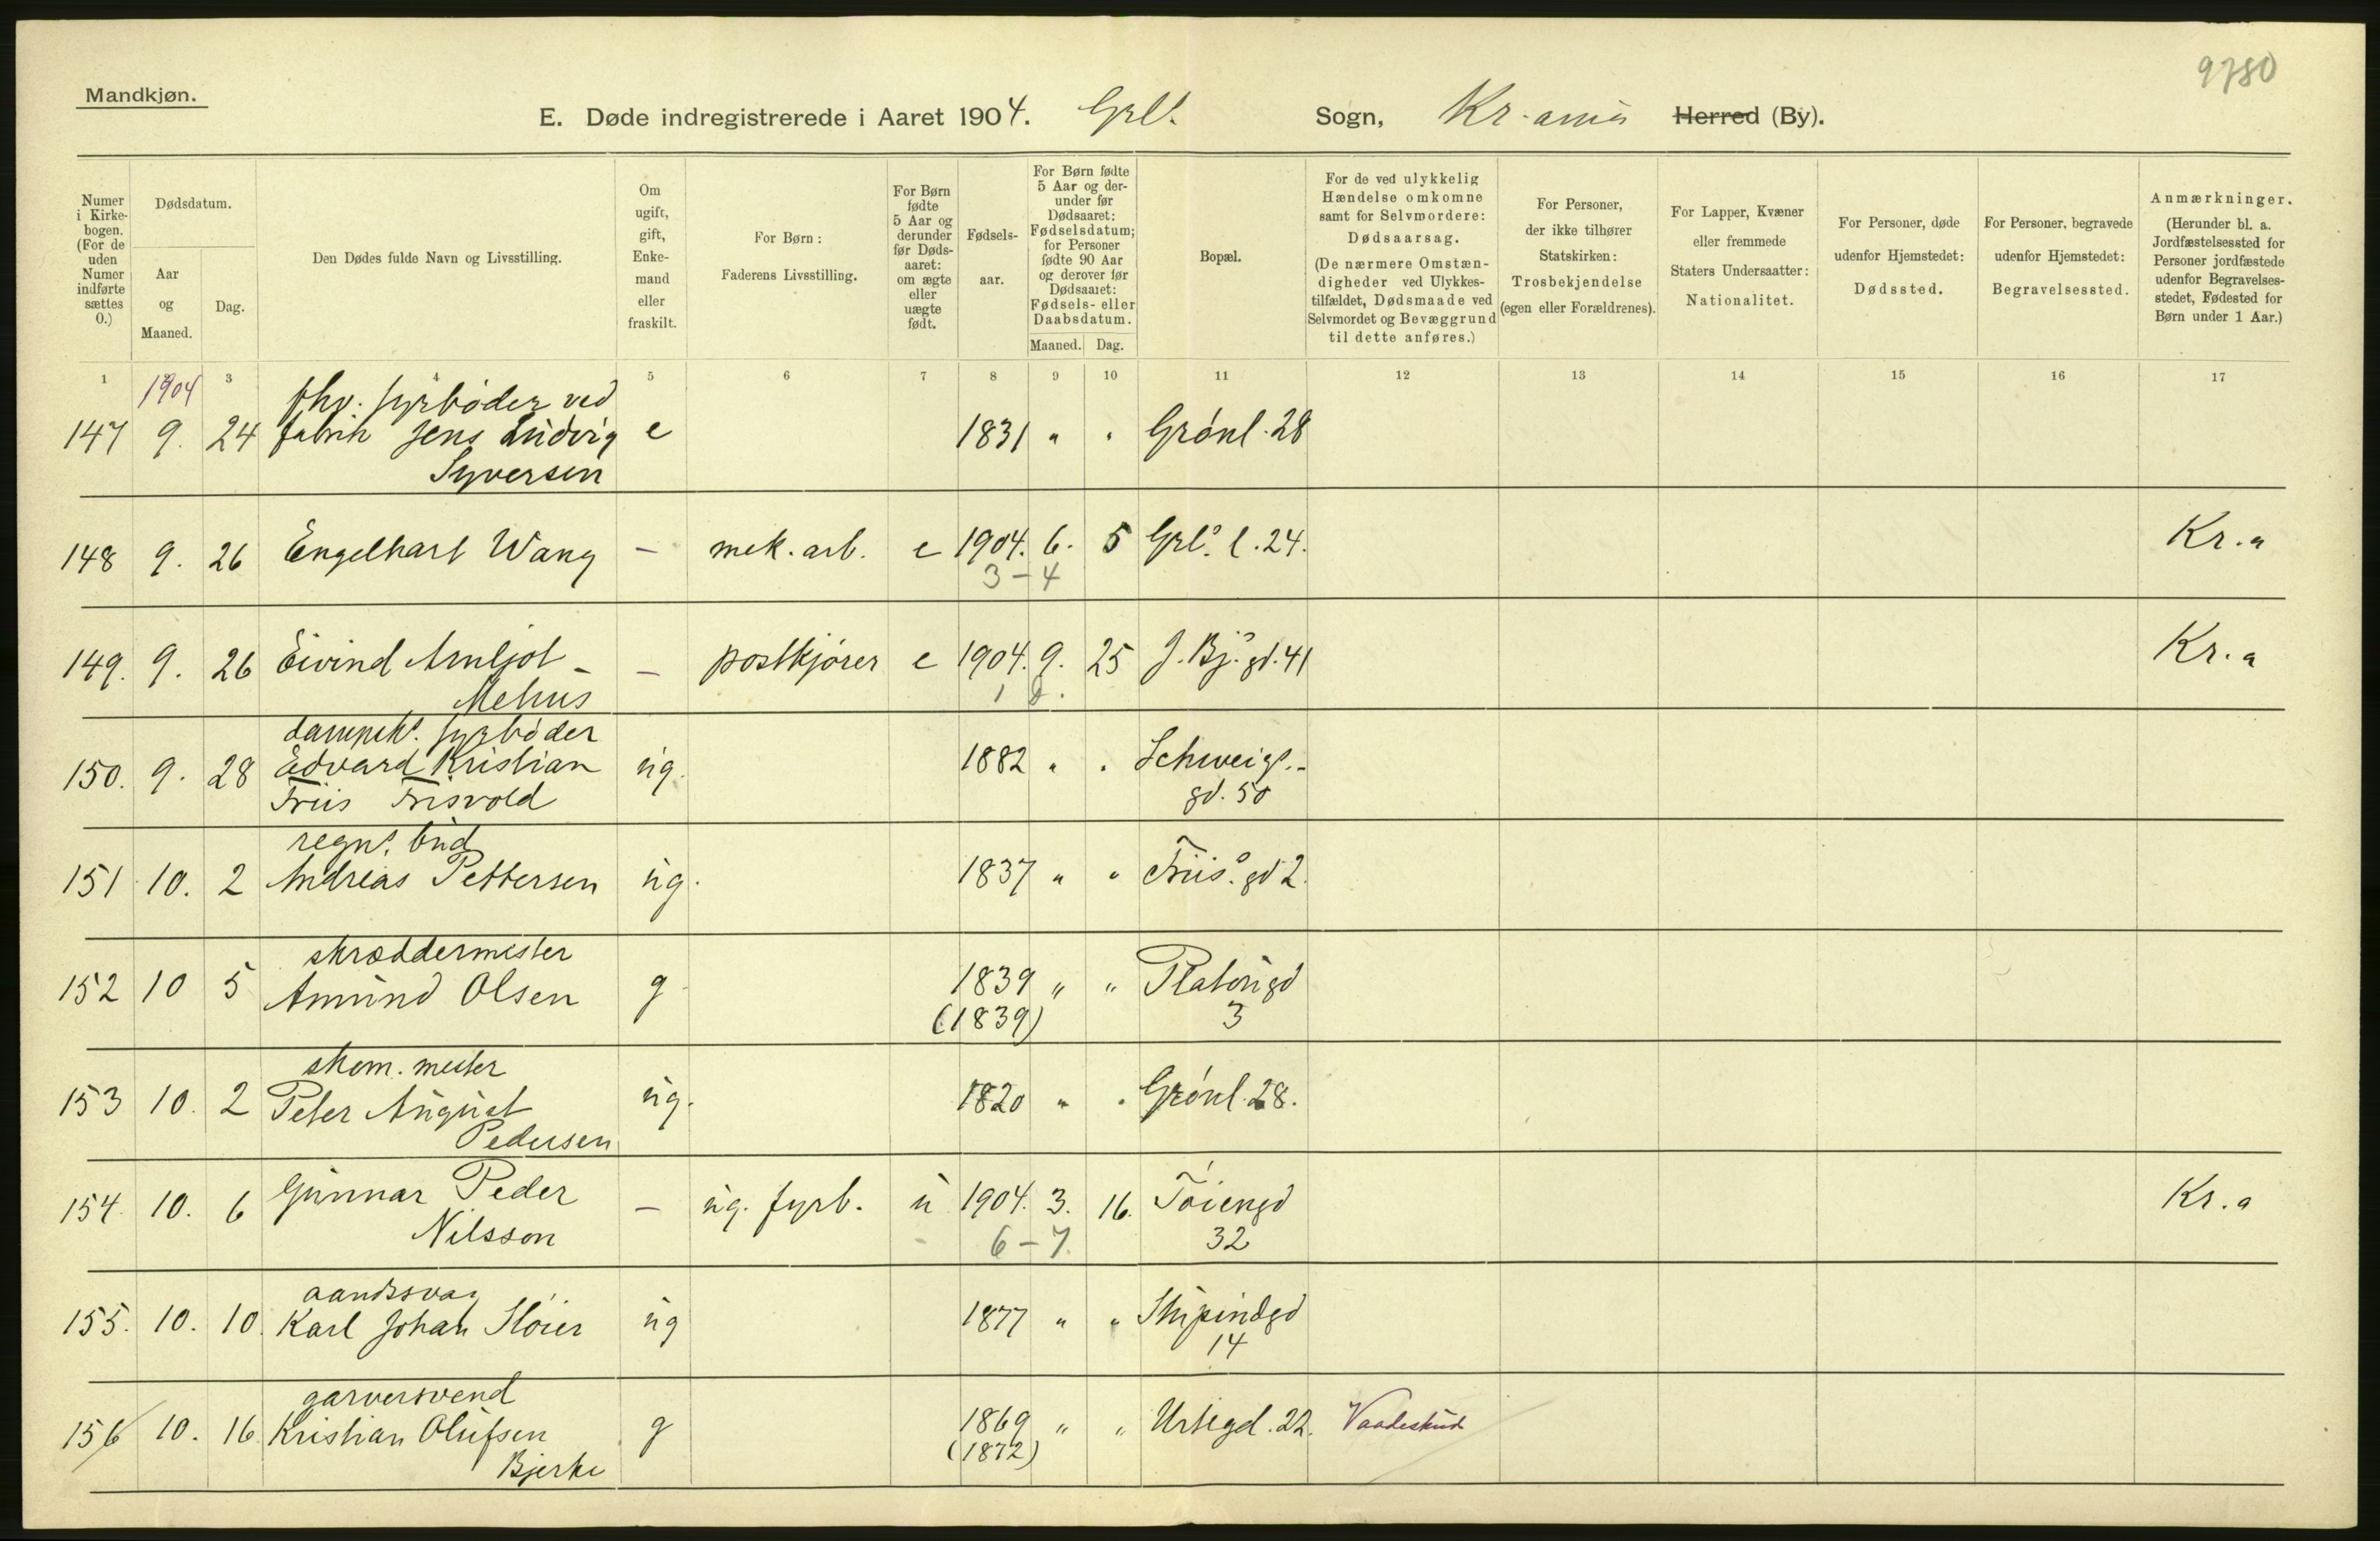 9780
Mandkjøn.
E. Døde indregistrerede i Aaret 1904. Grl. Sogn, Kr.ania Herred (By).
Numer i Kirkebogen. (For de uden Numer indførte sættes 0.)
Dødsdatum.
Aar og Maaned.
Dag.
Den Dødes fulde Navn og Livsstilling.
Om ugift, gift, Enkemand eller fraskilt.
For Børn: Faderens Livsstilling.
For Børn fødte 5 Aar og derunder før Dødsaaret: om ægte eller uægte født.
Fødselsaar.
For Børn fødte 5 Aar og derunder før Dødsaaret: Fødselsdatum; for Personer fødte 90 Aar og derover før Dødsaaret: Fødsels- eller Daabsdatum.
Maaned. Dag.
Bopæl.
For de ved ulykkelig Hændelse omkomne samt for Selvmordere: Dødsaarsag. (De nærmere Omstændigheder ved Ulykkestilfældet, Dødsmaade ved Selvmordet og Bevæggrund til dette anføres.)
For Personer, der ikke tilhører Statskirken: Trosbekjendelse (egen eller Forældrenes).
For Lapper, Kvæner eller fremmede Staters Undersaatter: Nationalitet.
For Personer, døde udenfor Hjemstedet: Dødssted.
For Personer, begravede udenfor Hjemstedet: Begravelsessted.
Anmærkninger. (Herunder bl. a. Jordfæstelsessted for Personer jordfæstede udenfor Begravelsesstedet, Fødested for Børn under 1 Aar.)
1 3 4 5 6 7 8 9 10 11 12 13 14 15 16 17
1904
fhv. fyrbøder ved
147 9. 24 fabrik Jens Ludvig e 1831 " " Grønl. 28
Syversen
148 9. 26 Engelhart Wang – mek. arb. e 1904. 6. 5 Grl. l. 24. Kr.a
3–4
149. 9. 26 Eivind Arnljot – – postkjører e 1904. 9. 25 J. Bj. gd. 41 Kr.a
Mehus 1 d.
dampsk. fyrbøder
150. 9. 28 Edvard Kristian ug. 1882 " " Schweig.-
Friis Frisvold gd. 50
regns. bud
151 10. 2 Andreas Pettersen ug. 1837 " " Friis. gd 2.
skræddermester
152 10 5 Amund Olsen g 1839 " " Platougd
(1839) 3
skom. mester
153 10. 2 Peter August ug. 1820 " " Grønl. 28.
Pedersen
154. 10. 6 Gunnar Peder – ug. fyrb. u 1904. 3. 16. Tøiengd Kr.a
Nilsson 6–7. 32
aandssvag
155. 10. 10. Karl Johan Støier ug 1877 " " Stupindgd
14
garversvend
156 10. 16. Kristian Olufsen g 1869 " " Urtegd. 22. Vaadeskud
Bjerke (1872)